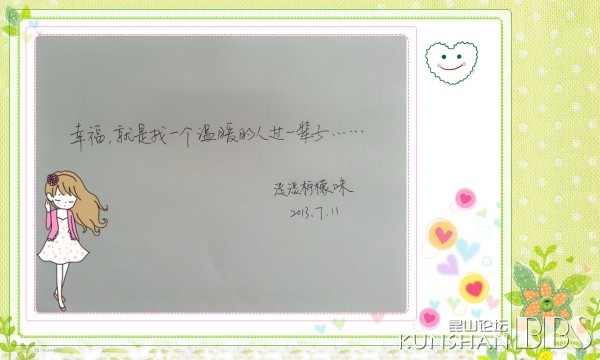 幸福,就是找一个温暖的人过一辈子……
淡淡柠檬味
2013.7.11
昆山论坛
KUNSHAN BBS